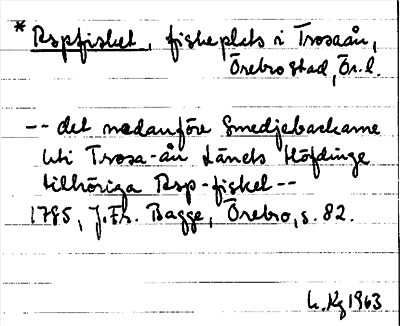 * Rspfisket, fiskeplats i Trosaån,
Örebro stad, Ör. l.
-- det nedanföre Smedjebackarne
uti Trosa-ån Länets Höfdinge
tillhöriga Rsp-fisket --
1785, J. Fr. Bagge, Örebro, s. 82.
L. Kg 1963